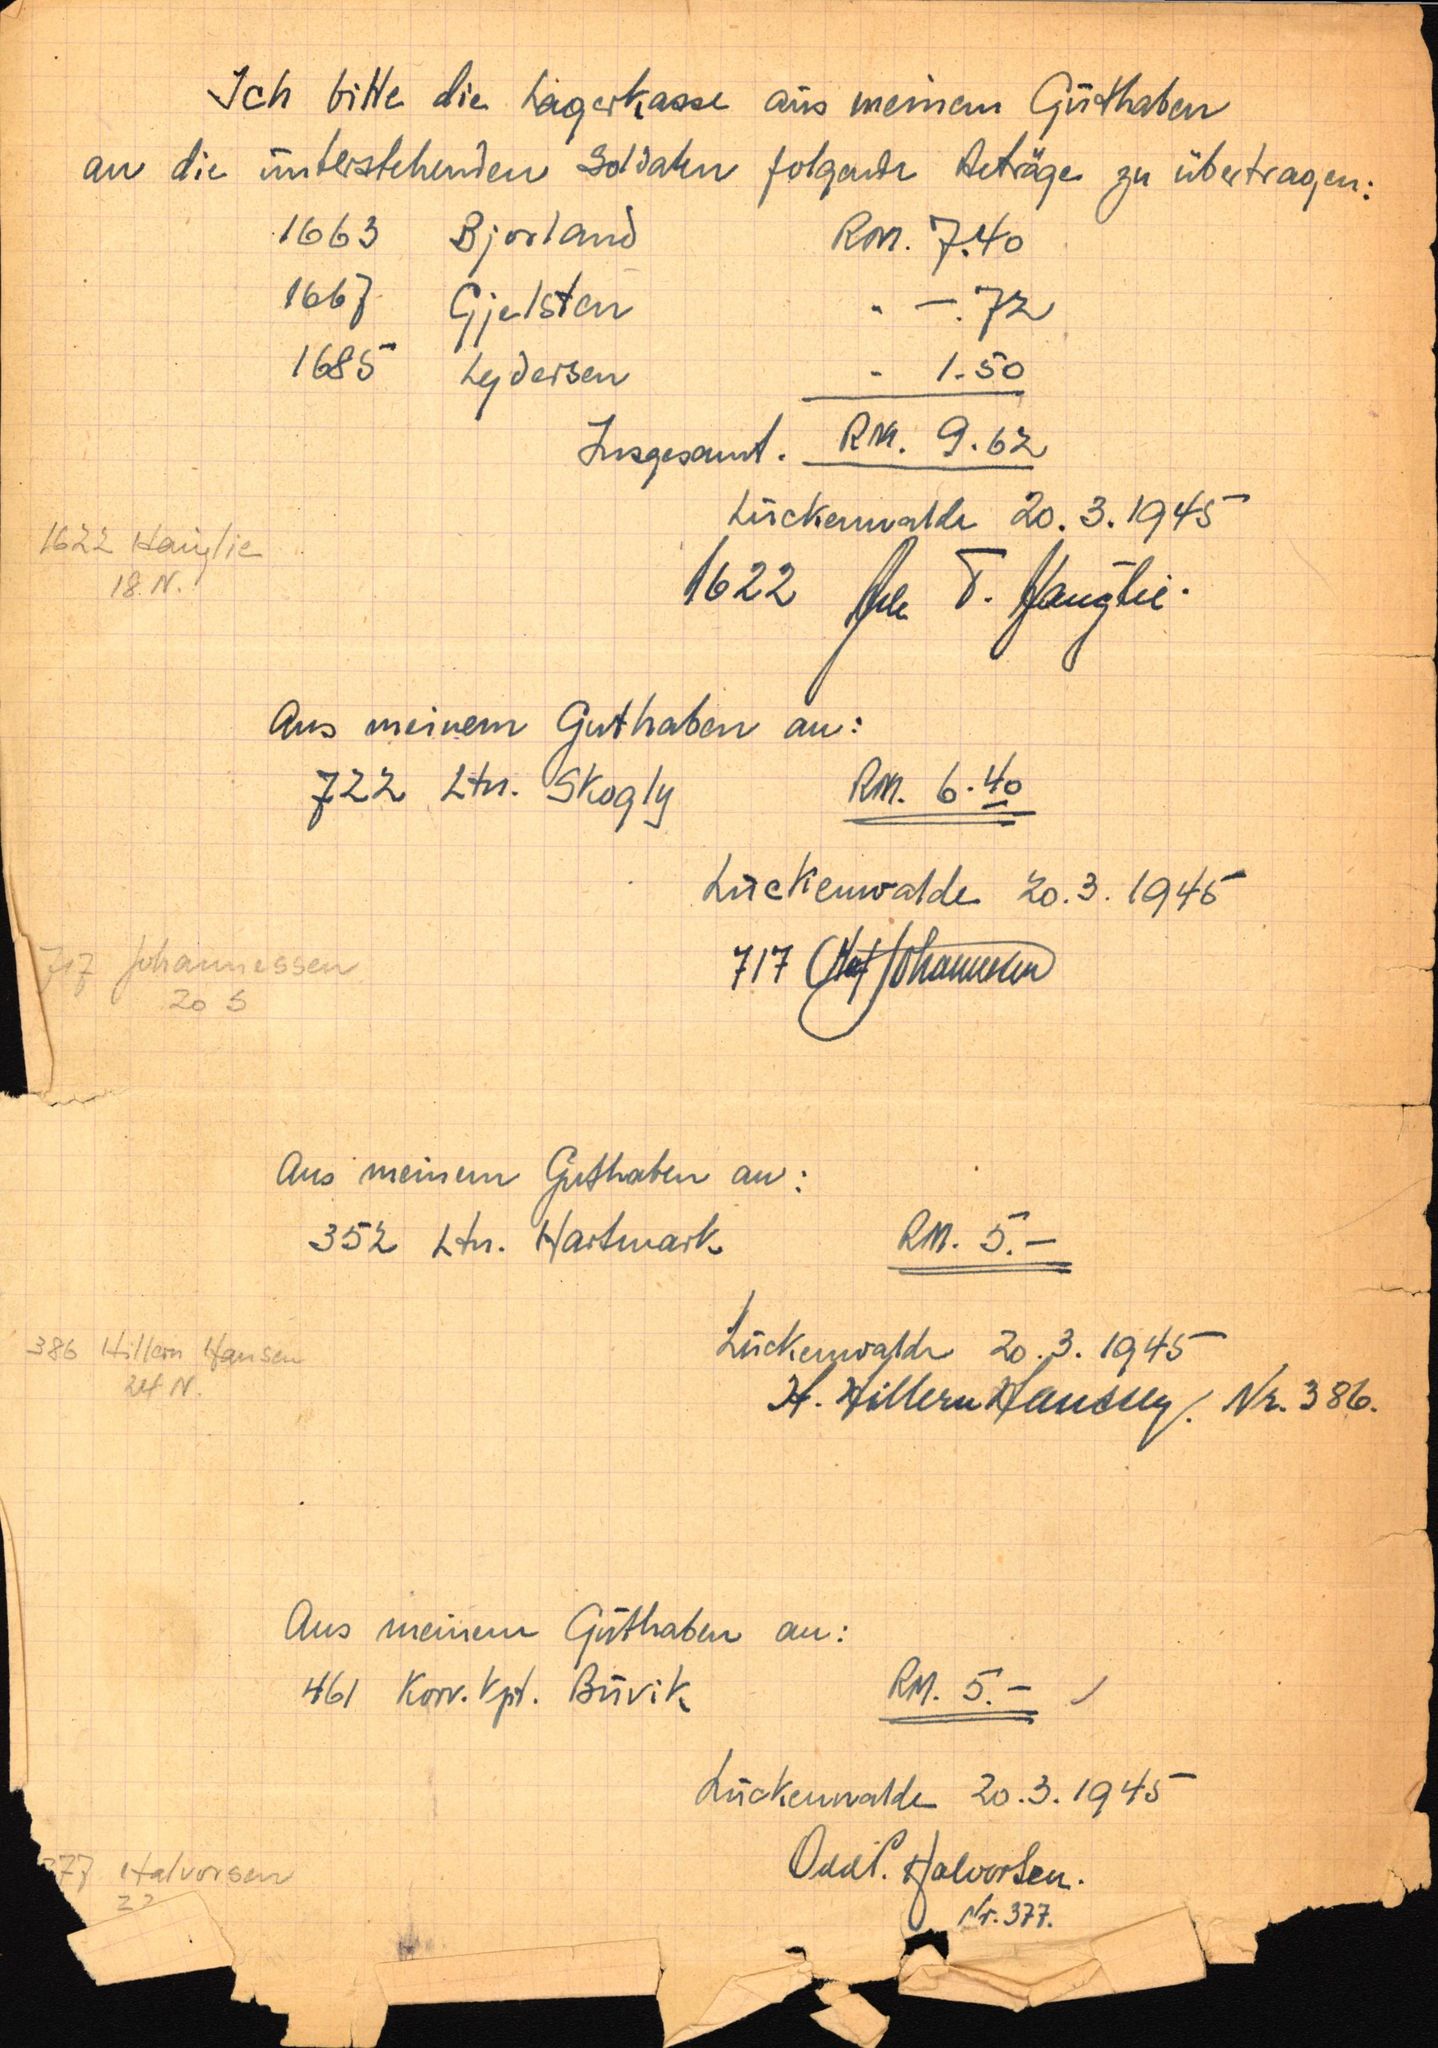 Ich bitte die Lagerkasse aus meinem Guthaben
an die unterstehenden Soldaten folgende Beträge zu übertragen:
1663 Bjorland RM. 7.40
1667 Gjelsten " —.72
1685 Lydersen " 1.50
Insgesamt. RM. 9.62
Luckenwalde 20.3.1945
1622 Hauglie
18 N.
1622 T. Hauglie.
Aus meinem Guthaben an:
722 Ltn. Skogly RM. 6.40
Luckenwalde 20.3.1945
717 Johannessen
20 S
717 Olaf Johannessen
Aus meinem Guthaben an:
352 Ltn. Hartmark RM. 5.—
386 Hillern Hansen
24 N.
Luckenwalde 20.3.1945
H. Hillern Hanssen, Nr. 386.
Aus meinem Guthaben an:
461 Korv. Kpt. Buvik RM. 5.—
Luckenwalde 20.3.1945
377 Halvorsen
Odd P. Halvorsen.
Nr. 377.